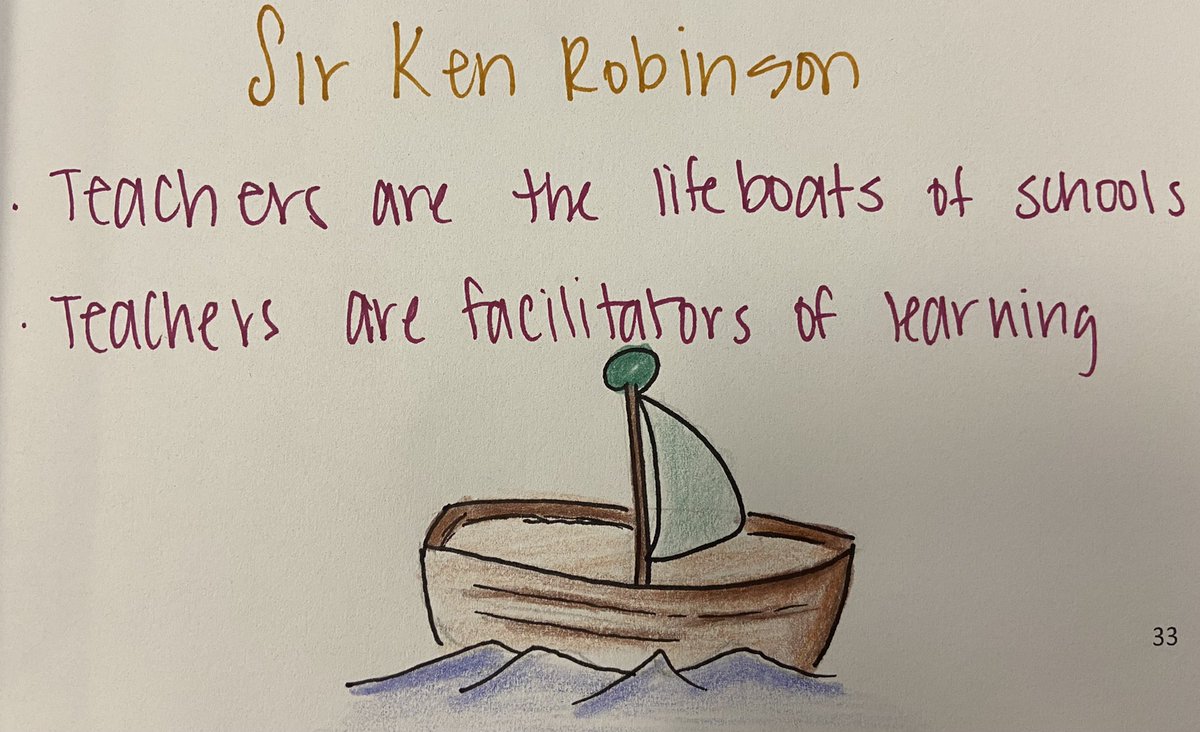 Sir Ken Robinson
· Teachers are the lifeboats of schools
· Teachers are facilitators of learning
33